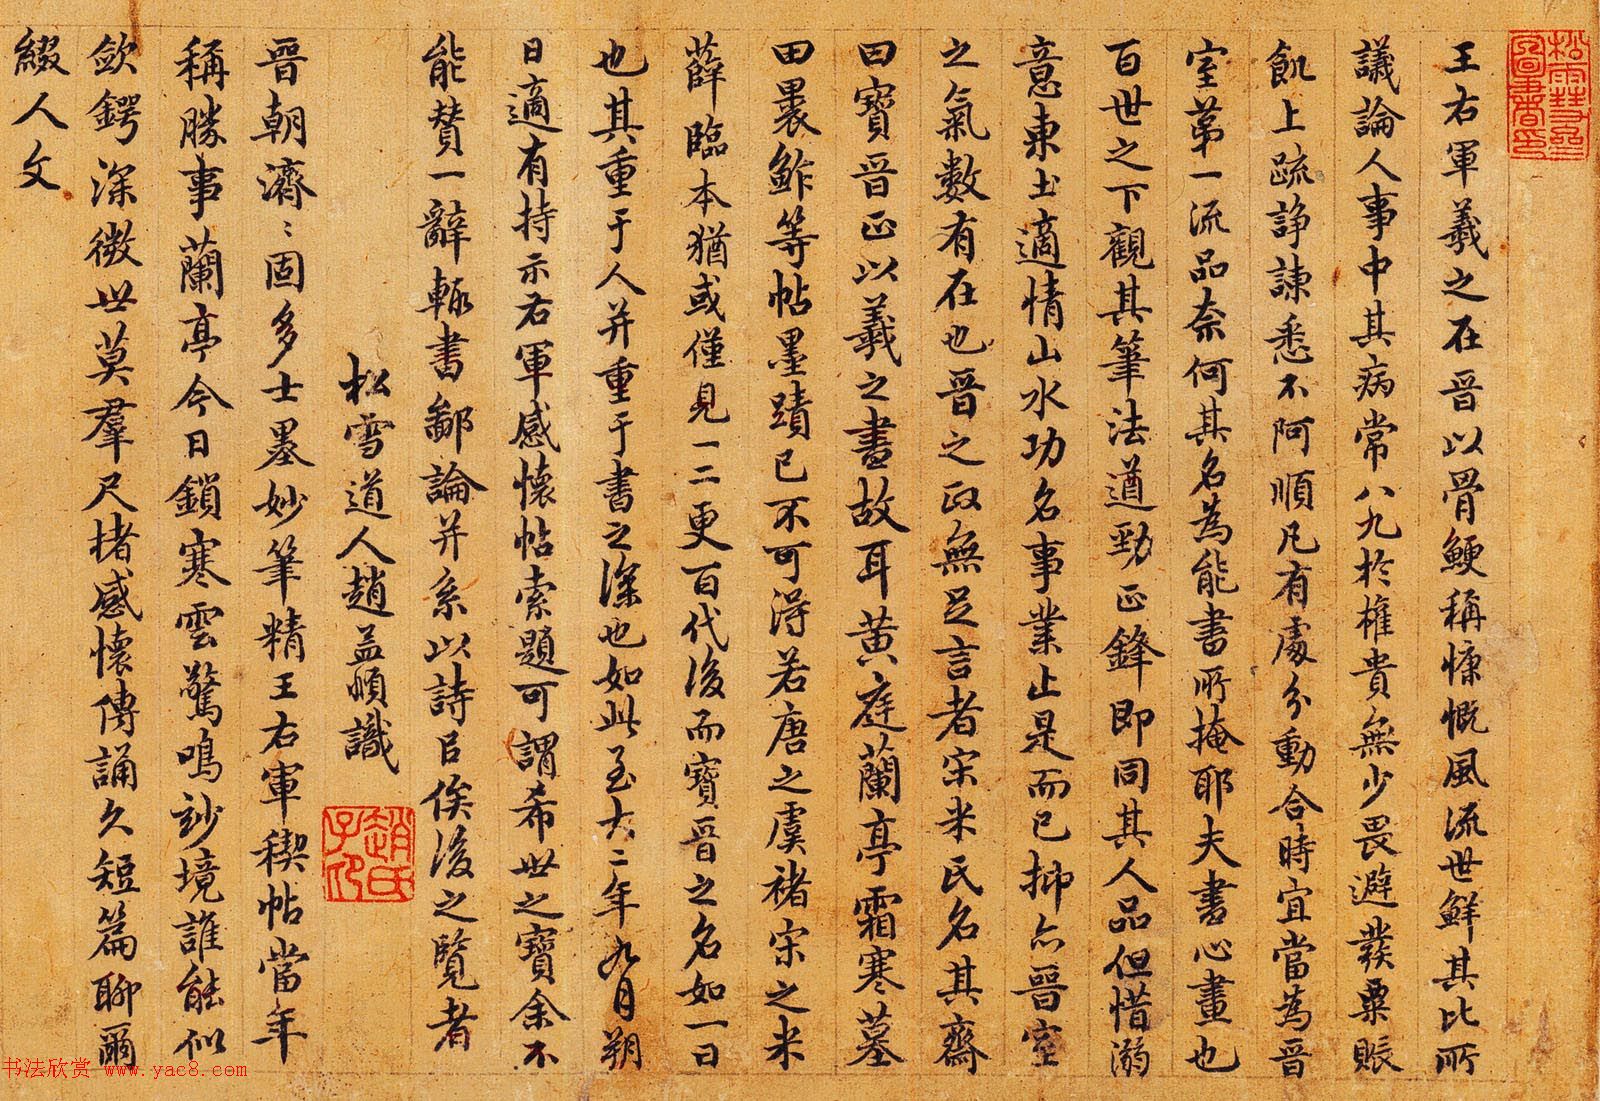 王右軍羲之在晉以骨鯁稱慷慨風流世鮮其比所
議論人事中其病常八九於權貴無少畏避發粟賑
飢上疏諍諫悉不阿順凡有處分動合時宜當為晉
室第一流品奈何其名為能書所掩耶夫書心畫也
百世之下觀其筆法遒勁正鋒即同其人品但惜溺
意東土適情山水功名事業止是而已抑亦晉室
之氣數有在也晉之政無足言者宋米氏名其齋
曰寶晉正以羲之畫故耳黃庭蘭亭霜寒墓
田裹鮓等帖墨蹟已不可得若唐之虞褚宋之米
薛臨本猶或僅見一二更百代後而寶晉之名如一日
也其重于人并重于書之深也如此至大二年九月朔
日適有持示右軍感懷帖索題可謂希世之寶余不
能贊一辭輒書鄙論并系以詩吕俟後之覽者
松雪道人趙孟頫識
晉朝濟〻固多士墨妙筆精王右軍稧帖當年
稱勝事蘭亭今日鎖寒雲驚鳴妙境誰能似
斂鍔深微世莫羣尺楮感懷傳誦久短篇聊爾
綴人文
趙氏子印
书法欣赏 www.yac8.com